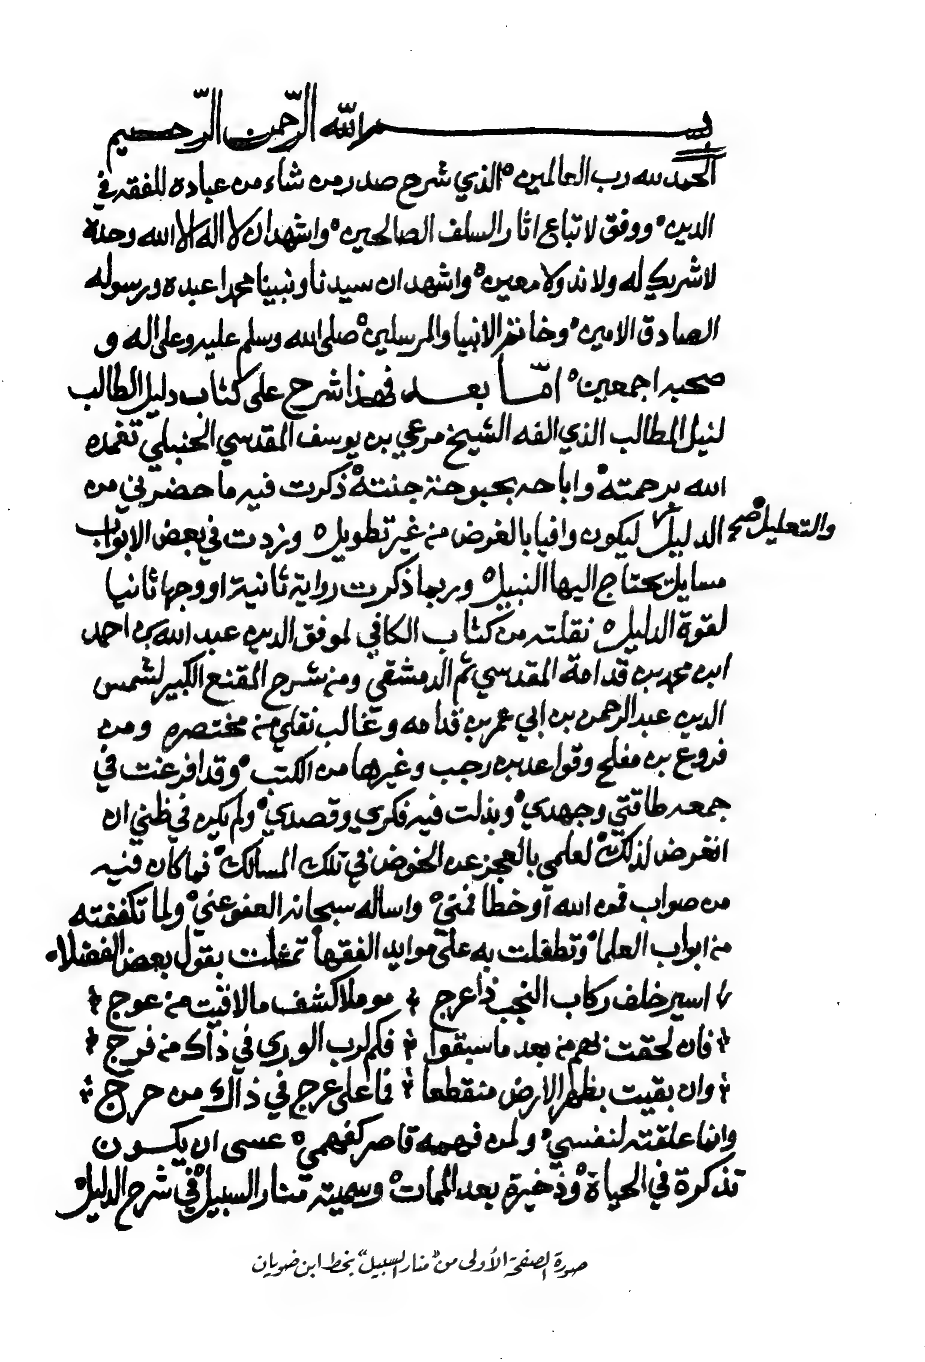 بسم الله الرحمن الرحيم
الحمد لله رب العالمين الذي شرح صدر من شاء من عباده للفقه في
الدين ووفق لاتباع اثار السلف الصالحين واشهد ان لا اله الا الله وحده
لا شريك له ولا ند ولا معين واشهد ان سيدنا ونبينا محمدا عبده ورسوله
الصادق الامين وخاتم الانبيا والمرسلين صلى الله وسلم عليه وعلى اله و
صحبه اجمعين امّا بعد فهذا شرح على كتاب دليل الطالب
لنيل المطالب الذي الفه الشيخ مرعي بن يوسف المقدسي الحنبلي تغمده
الله برحمته واباحه بحبوحة جنته ذكرت فيه ما حضرني من
الدليل والتعليل صح ليكون وافيا بالغرض من غير تطويل وزدت في بعض الابواب
مسايل يحتاج اليها النبيل وربما ذكرت رواية ثانية او وجها ثانيا
لقوة الدليل نقلته من كتاب الكافي لموفق الدين عبد الله بن احمد
ابن محمد بن قدامة المقدسي ثم الدمشقي ومن شرح المقنع الكبير لشمس
الدين عبد الرحمن بن ابي عمر بن قدامه وغالب نقلي من مختصره ومن
فروع بن مفلح وقواعد بن رجب وغيرها من الكتب وقد افرغت في
جمعه طاقتي وجهدي وبذلت فيه فكري وقصدي ولم يكن في ظني ان
اتعرض لذلك لعلمي بالعجز عن الخوض في تلك المسالك فما كان فيه
من صواب فمن الله او خطا فمني واساله سبحانه العفو عني ولما تكففته
من ابواب العلما وتطفلت به على موايد الفقها تمثلت بقول بعض الفضلا
اسير خلف ركاب النجب ذا عرج موملا كشف ما لاقيت من عوج
فان لحقت بهم من بعد ما سبقوا فكم لرب الورى في ذاك من فرج
وان بقيت بظهر الارض منقطعا فما على عرج في ذاك من حرج
وانما علقته لنفسي ولمن فهمه قاصر كفهمي عسى ان يكون
تذكرة في الحياة وذخيرة بعد الممات وسميته منار السبيل في شرح الدليل
صورة الصفحة الأولى من "منار السبيل" بخط ابن ضويان